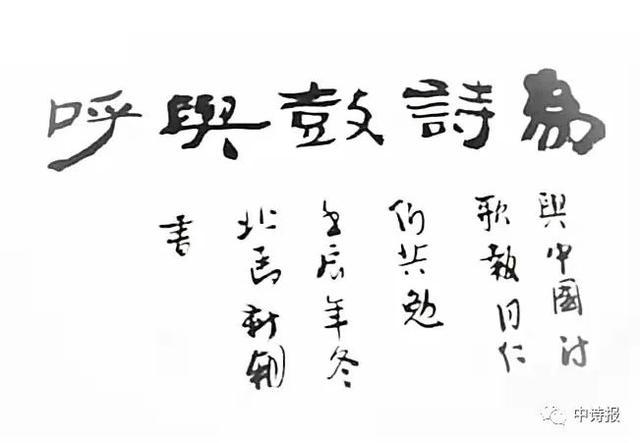 為詩鼓與呼
與中國诗
歌報同仁
们共勉
壬辰年冬
馬新朝
書
中诗报